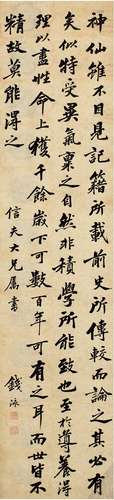 神仙雖不目見記籍所載前史所傳較而論之其必有
矣似特受異氣稟之自然非積學所能致也至於導養得
理以盡性命上獲千餘歲下可數百年可有之耳而世皆不
精故莫能得之
信夫大兄屬書
錢泳